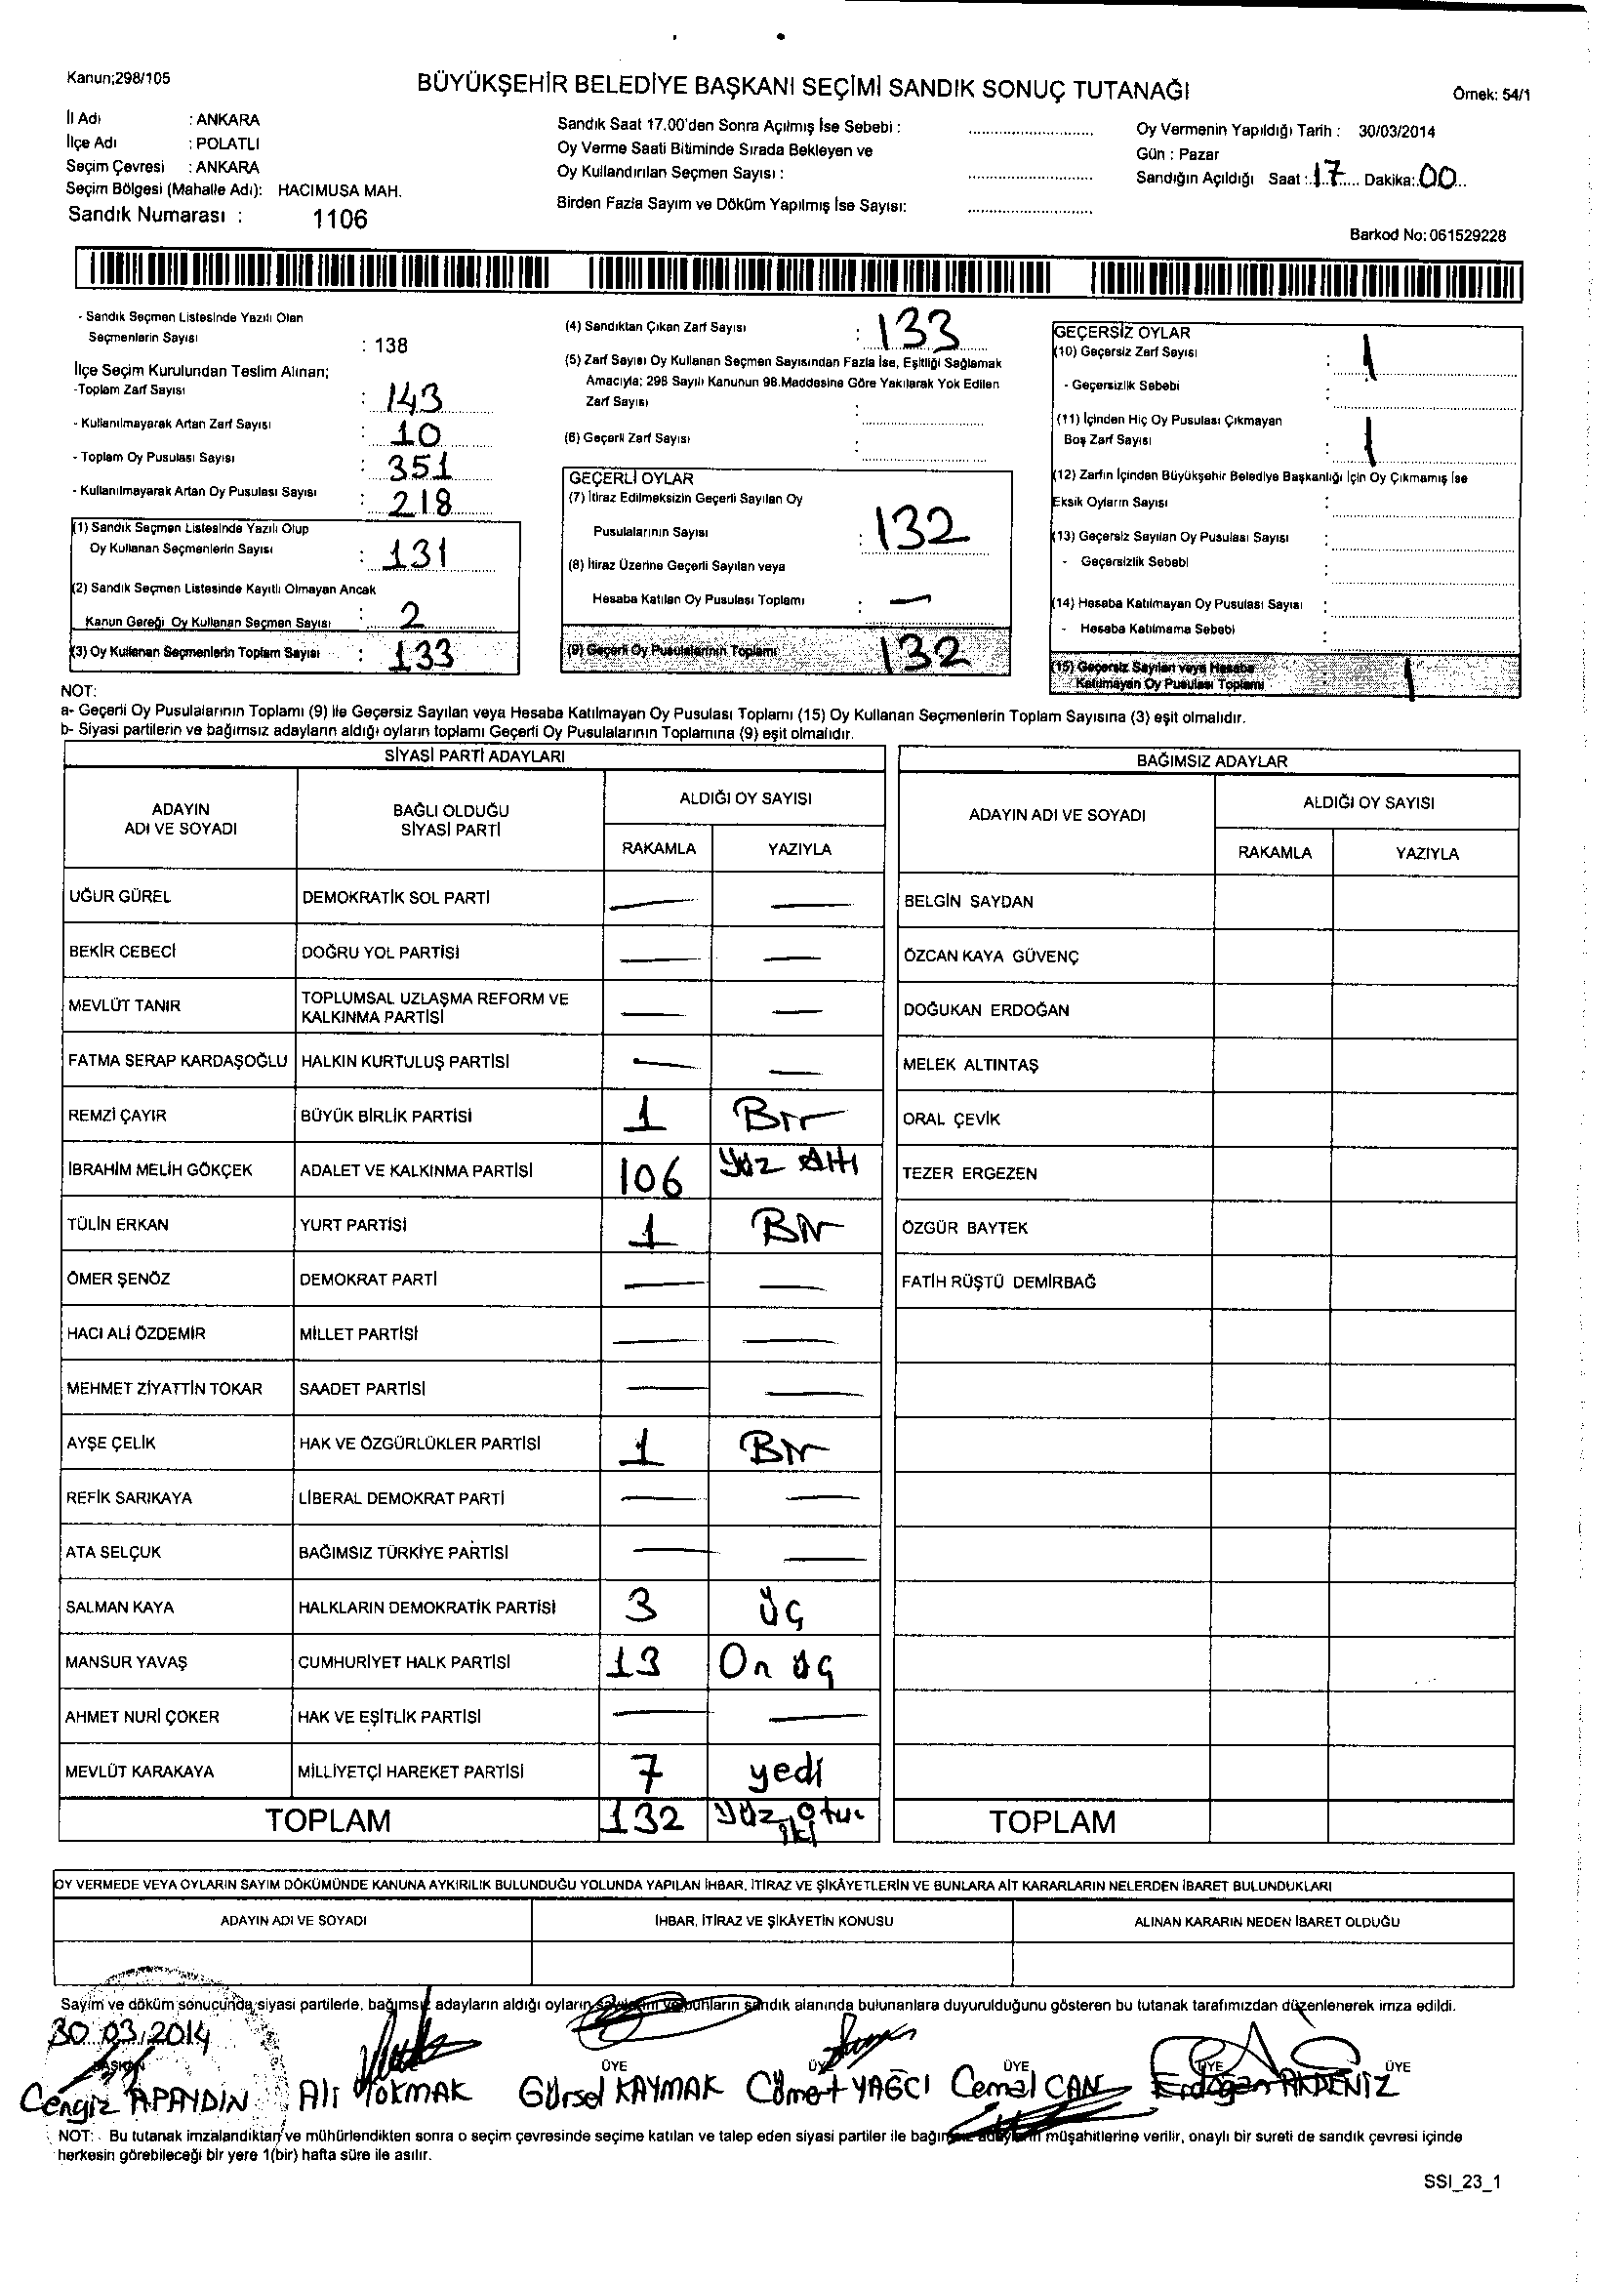 Kanun;298/105
BÜYÜKŞEHİR BELEDİYE BAŞKANI SEÇİMİ SANDIK SONUÇ TUTANAĞI
Örnek: 54/1
İl Adı : ANKARA
İlçe Adı : POLATLI
Seçim Çevresi : ANKARA
Seçim Bölgesi (Mahalle Adı): HACIMUSA MAH.
Sandık Numarası : 1106
Sandık Saat 17.00'den Sonra Açılmış İse Sebebi :
Oy Verme Saati Bitiminde Sırada Bekleyen ve
Oy Kullandırılan Seçmen Sayısı :
Birden Fazla Sayım ve Döküm Yapılmış İse Sayısı:
Oy Vermenin Yapıldığı Tarih : 30/03/2014
Gün : Pazar
Sandığın Açıldığı Saat : 17 Dakika: 00
Barkod No: 061529228
- Sandık Seçmen Listesinde Yazılı Olan
Seçmenlerin Sayısı : 138
İlçe Seçim Kurulundan Teslim Alınan;
-Toplam Zarf Sayısı : 143
- Kullanılmayarak Artan Zarf Sayısı : 10
- Toplam Oy Pusulası Sayısı : 351
- Kullanılmayarak Artan Oy Pusulası Sayısı : 218
(1) Sandık Seçmen Listesinde Yazılı Olup
Oy Kullanan Seçmenlerin Sayısı : 131
(2) Sandık Seçmen Listesinde Kayıtlı Olmayan Ancak
Kanun Gereği Oy Kullanan Seçmen Sayısı : 2
(3) Oy Kullanan Seçmenlerin Toplam Sayısı : 133
(4) Sandıktan Çıkan Zarf Sayısı : 133
(5) Zarf Sayısı Oy Kullanan Seçmen Sayısından Fazla İse, Eşitliği Sağlamak
Amacıyla; 298 Sayılı Kanunun 98.Maddesine Göre Yakılarak Yok Edilen
Zarf Sayısı :
(6) Geçerli Zarf Sayısı :
GEÇERLİ OYLAR
(7) İtiraz Edilmeksizin Geçerli Sayılan Oy
Pusulalarının Sayısı : 132
(8) İtiraz Üzerine Geçerli Sayılan veya
Hesaba Katılan Oy Pusulası Toplamı : —
(9) Geçerli Oy Pusulalarının Toplamı 132
GEÇERSİZ OYLAR
(10) Geçersiz Zarf Sayısı : 1
- Geçersizlik Sebebi :
(11) İçinden Hiç Oy Pusulası Çıkmayan
Boş Zarf Sayısı : 1
(12) Zarfın İçinden Büyükşehir Belediye Başkanlığı İçin Oy Çıkmamış İse
Eksik Oyların Sayısı :
(13) Geçersiz Sayılan Oy Pusulası Sayısı :
- Geçersizlik Sebebi :
(14) Hesaba Katılmayan Oy Pusulası Sayısı :
- Hesaba Katılmama Sebebi :
(15) Geçersiz Sayılan veya Hesaba
Katılmayan Oy Pusulası Toplamı : 1
NOT:
a- Geçerli Oy Pusulalarının Toplamı (9) ile Geçersiz Sayılan veya Hesaba Katılmayan Oy Pusulası Toplamı (15) Oy Kullanan Seçmenlerin Toplam Sayısına (3) eşit olmalıdır.
b- Siyasi partilerin ve bağımsız adayların aldığı oyların toplamı Geçerli Oy Pusulalarının Toplamına (9) eşit olmalıdır.
SİYASİ PARTİ ADAYLARI
ADAYIN ADI VE SOYADI BAĞLI OLDUĞU SİYASİ PARTİ ALDIĞI OY SAYISI
RAKAMLA YAZIYLA
UĞUR GÜREL DEMOKRATİK SOL PARTİ — —
BEKİR CEBECİ DOĞRU YOL PARTİSİ — —
MEVLÜT TANIR TOPLUMSAL UZLAŞMA REFORM VE KALKINMA PARTİSİ — —
FATMA SERAP KARDAŞOĞLU HALKIN KURTULUŞ PARTİSİ — —
REMZİ ÇAYIR BÜYÜK BİRLİK PARTİSİ 1 Bir
İBRAHİM MELİH GÖKÇEK ADALET VE KALKINMA PARTİSİ 106 Yüz Altı
TÜLİN ERKAN YURT PARTİSİ 1 Bir
ÖMER ŞENÖZ DEMOKRAT PARTİ — —
HACI ALİ ÖZDEMİR MİLLET PARTİSİ — —
MEHMET ZİYATTİN TOKAR SAADET PARTİSİ — —
AYŞE ÇELİK HAK VE ÖZGÜRLÜKLER PARTİSİ 1 Bir
REFİK SARIKAYA LİBERAL DEMOKRAT PARTİ — —
ATA SELÇUK BAĞIMSIZ TÜRKİYE PARTİSİ — —
SALMAN KAYA HALKLARIN DEMOKRATİK PARTİSİ 3 üç
MANSUR YAVAŞ CUMHURİYET HALK PARTİSİ 13 On üç
AHMET NURİ ÇOKER HAK VE EŞİTLİK PARTİSİ — —
MEVLÜT KARAKAYA MİLLİYETÇİ HAREKET PARTİSİ 7 yedi
TOPLAM 132 Yüz otuz iki
BAĞIMSIZ ADAYLAR
ADAYIN ADI VE SOYADI ALDIĞI OY SAYISI
RAKAMLA YAZIYLA
BELGİN SAYDAN
ÖZCAN KAYA GÜVENÇ
DOĞUKAN ERDOĞAN
MELEK ALTINTAŞ
ORAL ÇEVİK
TEZER ERGEZEN
ÖZGÜR BAYTEK
FATİH RÜŞTÜ DEMİRBAĞ
TOPLAM
OY VERMEDE VEYA OYLARIN SAYIM DÖKÜMÜNDE KANUNA AYKIRILIK BULUNDUĞU YOLUNDA YAPILAN İHBAR, İTİRAZ VE ŞİKÂYETLERİN VE BUNLARA AİT KARARLARIN NELERDEN İBARET BULUNDUKLARI
ADAYIN ADI VE SOYADI İHBAR, İTİRAZ VE ŞİKÂYETİN KONUSU ALINAN KARARIN NEDEN İBARET OLDUĞU
Sayım ve döküm sonucunda siyasi partilerle, bağımsız adayların aldığı oyların bunların sandık alanında bulunanlara duyurulduğunu gösteren bu tutanak tarafımızdan düzenlenerek imza edildi.
30.03.2014
BAŞKAN ÜYE ÜYE ÜYE ÜYE ÜYE
Cengiz APAYDIN Ali TOKMAK Gürsel KAYMAK Cömert YAĞCI Cemal CAN Erdoğan AKDENİZ
NOT: Bu tutanak imzalandıktan ve mühürlendikten sonra o seçim çevresinde seçime katılan ve talep eden siyasi partiler ile bağımsız adayların müşahitlerine verilir, onaylı bir sureti de sandık çevresi içinde
herkesin görebileceği bir yere 1(bir) hafta süre ile asılır.
SSI_23_1